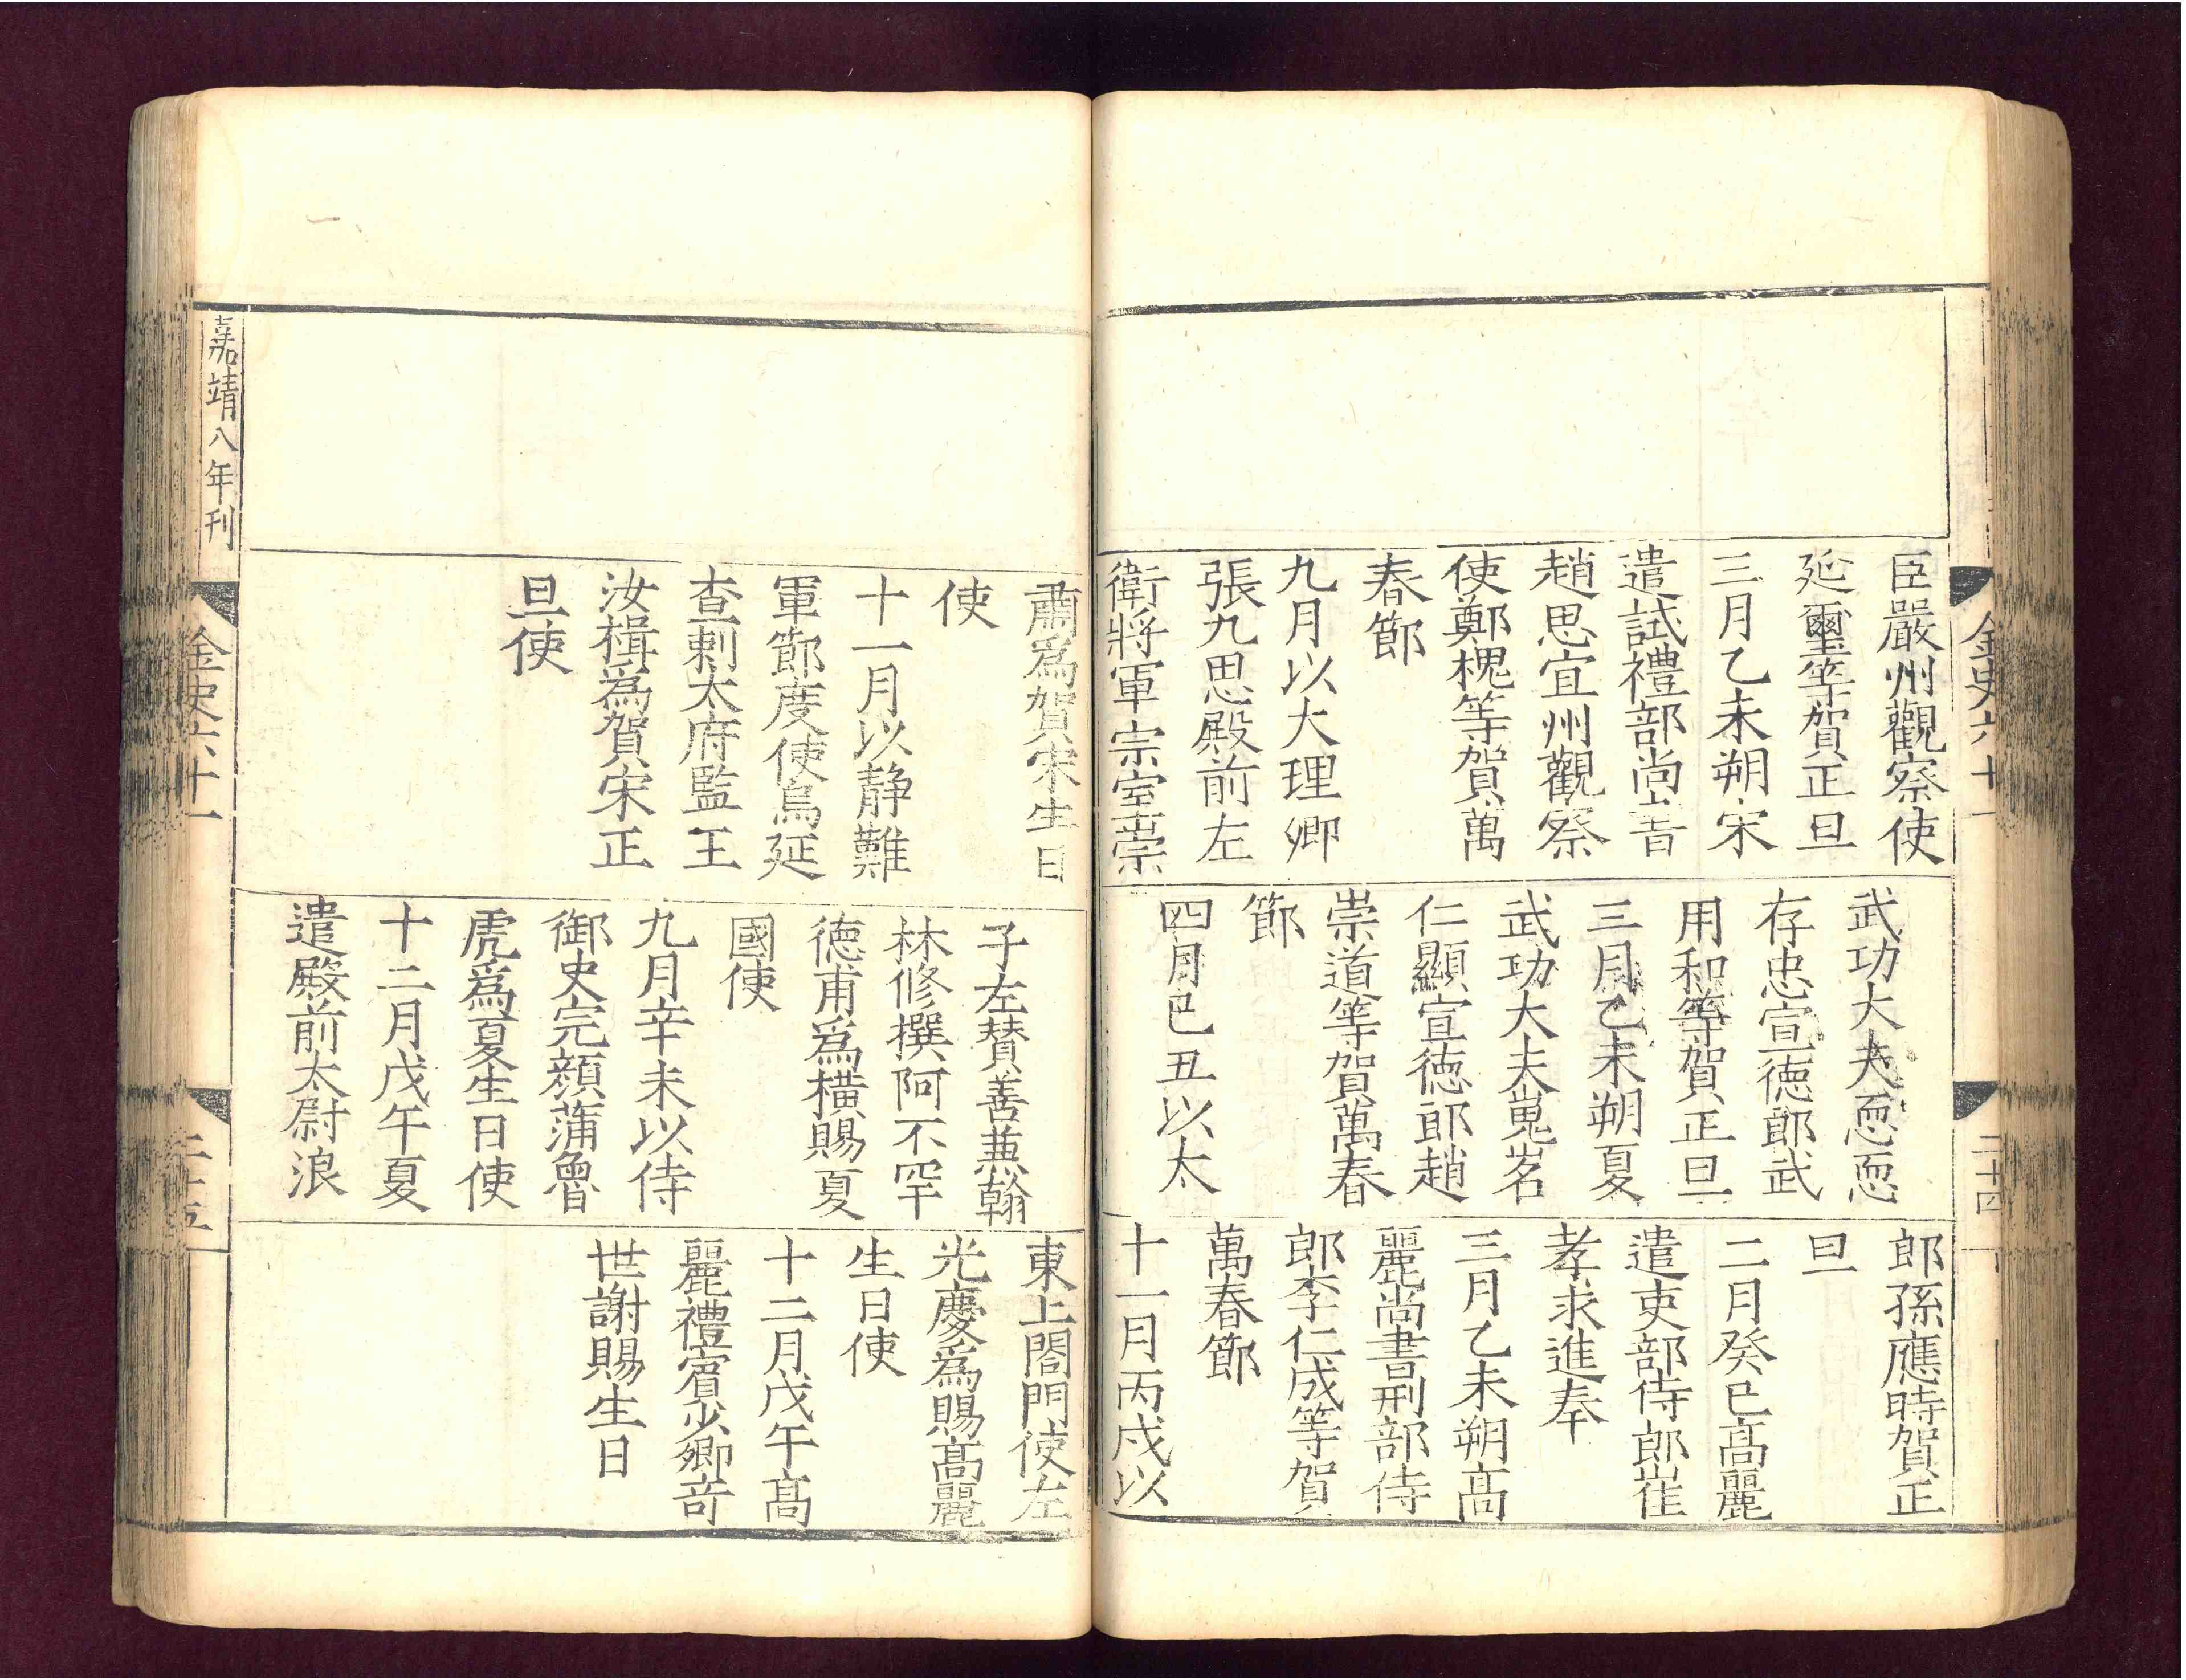 金史六十一
二十四
臣嚴州觀察使
延璽等賀正旦
三月乙未朔宋
遣試禮部尚書
趙思宜州觀察
使鄭槐等賀萬
春節
九月以大理卿
張九思殿前左
衛將軍宗室崇
武功大夫恧恧
存忠宣徳郎武
用和等賀正旦
三月乙未朔夏
武功大夫嵬茗
仁顯宣徳郎趙
崇道等賀萬春
節
四月己丑以太
郎孫應時賀正
旦
二月癸巳髙麗
遣吏部侍郎崔
孝求進奉
三月乙未朔髙
麗尚書刑部侍
郎李仁成等賀
萬春節
十一月丙戌以
肅爲賀宋生日
使
十一月以静難
軍節度使烏延
查剌太府監王
汝楫爲賀宋正
旦使
子左賛善兼翰
林修撰阿不罕
德甫爲橫賜夏
國使
九月辛未以侍
御史完顔蒲魯
虎爲夏生日使
十二月戊午夏
遣殿前太尉浪
東上閤門使左
光慶爲賜髙麗
生日使
十二月戊午髙
麗禮賓少卿竒
世謝賜生日
嘉靖八年刊
金史六十一
二十五